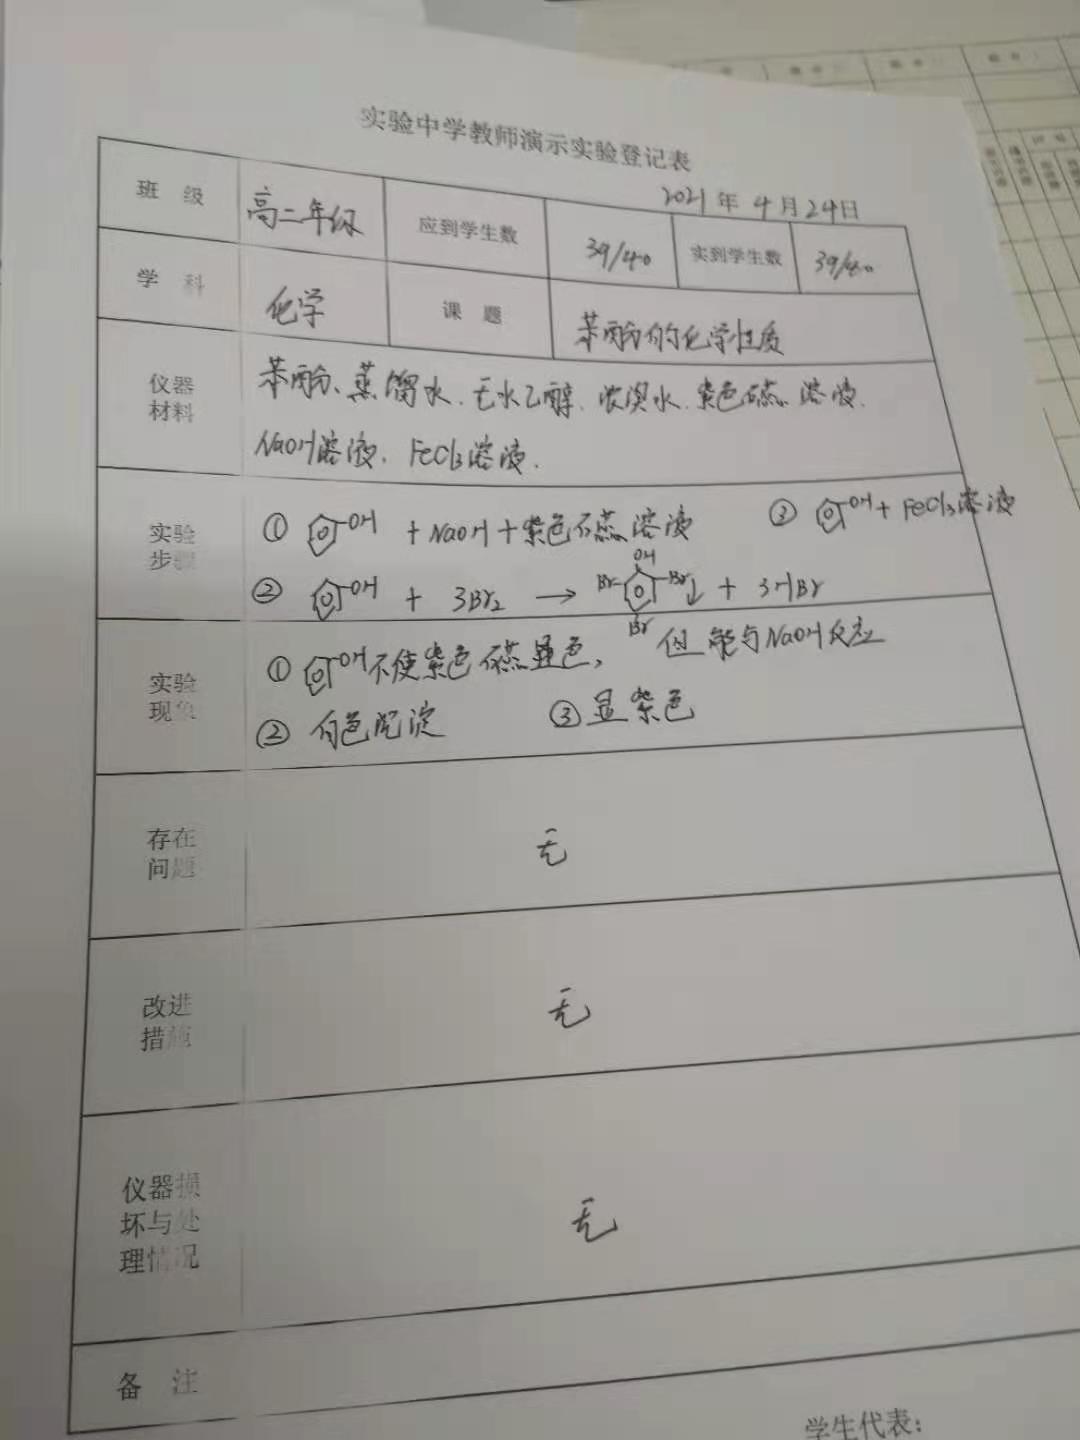 实验中学教师演示实验登记表
2021年4月24日
班 级 高二年级 应到学生数 39/40 实到学生数 39/40
学 科 化学 课 题 苯酚的化学性质
仪器材料 苯酚、蒸馏水、无水乙醇、浓溴水、紫色石蕊溶液、
NaOH溶液、FeCl3溶液.
实验步骤 ① OH + NaOH + 紫色石蕊溶液 ③ OH + FeCl3溶液
② OH + 3Br2 → OH Br Br Br ↓ + 3HBr
实验现象 ① OH 不使紫色石蕊显色, 但能与NaOH反应
② 白色沉淀 ③ 显紫色
存在问题 无
改进措施 无
仪器损坏与处理情况 无
备 注
学生代表：